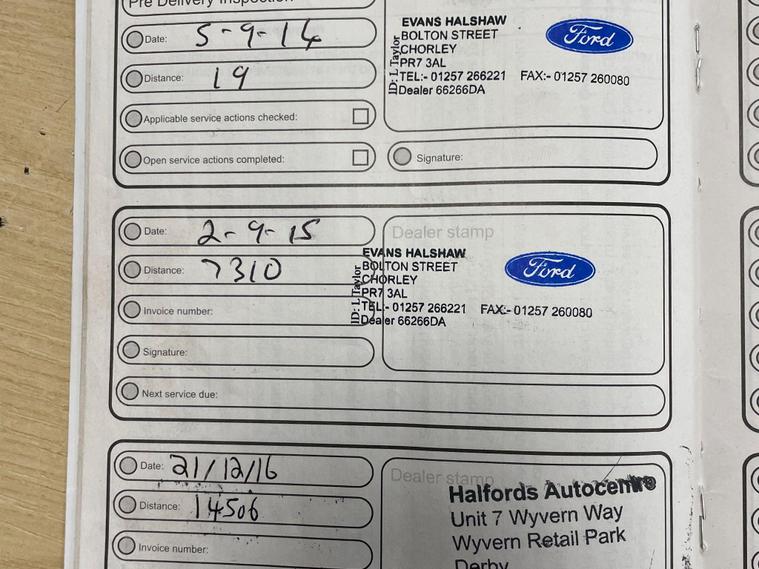 Pre Delivery Inspection
Date: 5-9-14
Distance: 19
Applicable service actions checked:
Open service actions completed:
EVANS HALSHAW
BOLTON STREET
CHORLEY
PR7 3AL
TEL:- 01257 266221 FAX:- 01257 260080
Dealer 66266DA
ID: L Taylor
Ford
Signature:
Date: 2-9-15
Distance: 7310
Invoice number:
Signature:
Next service due:
Dealer stamp
EVANS HALSHAW
BOLTON STREET
CHORLEY
PR7 3AL
TEL:- 01257 266221 FAX:- 01257 260080
Dealer 66266DA
ID: L Taylor
Ford
Date: 21/12/16
Distance: 14506
Invoice number:
Dealer stamp
Halfords Autocentre
Unit 7 Wyvern Way
Wyvern Retail Park
Derby